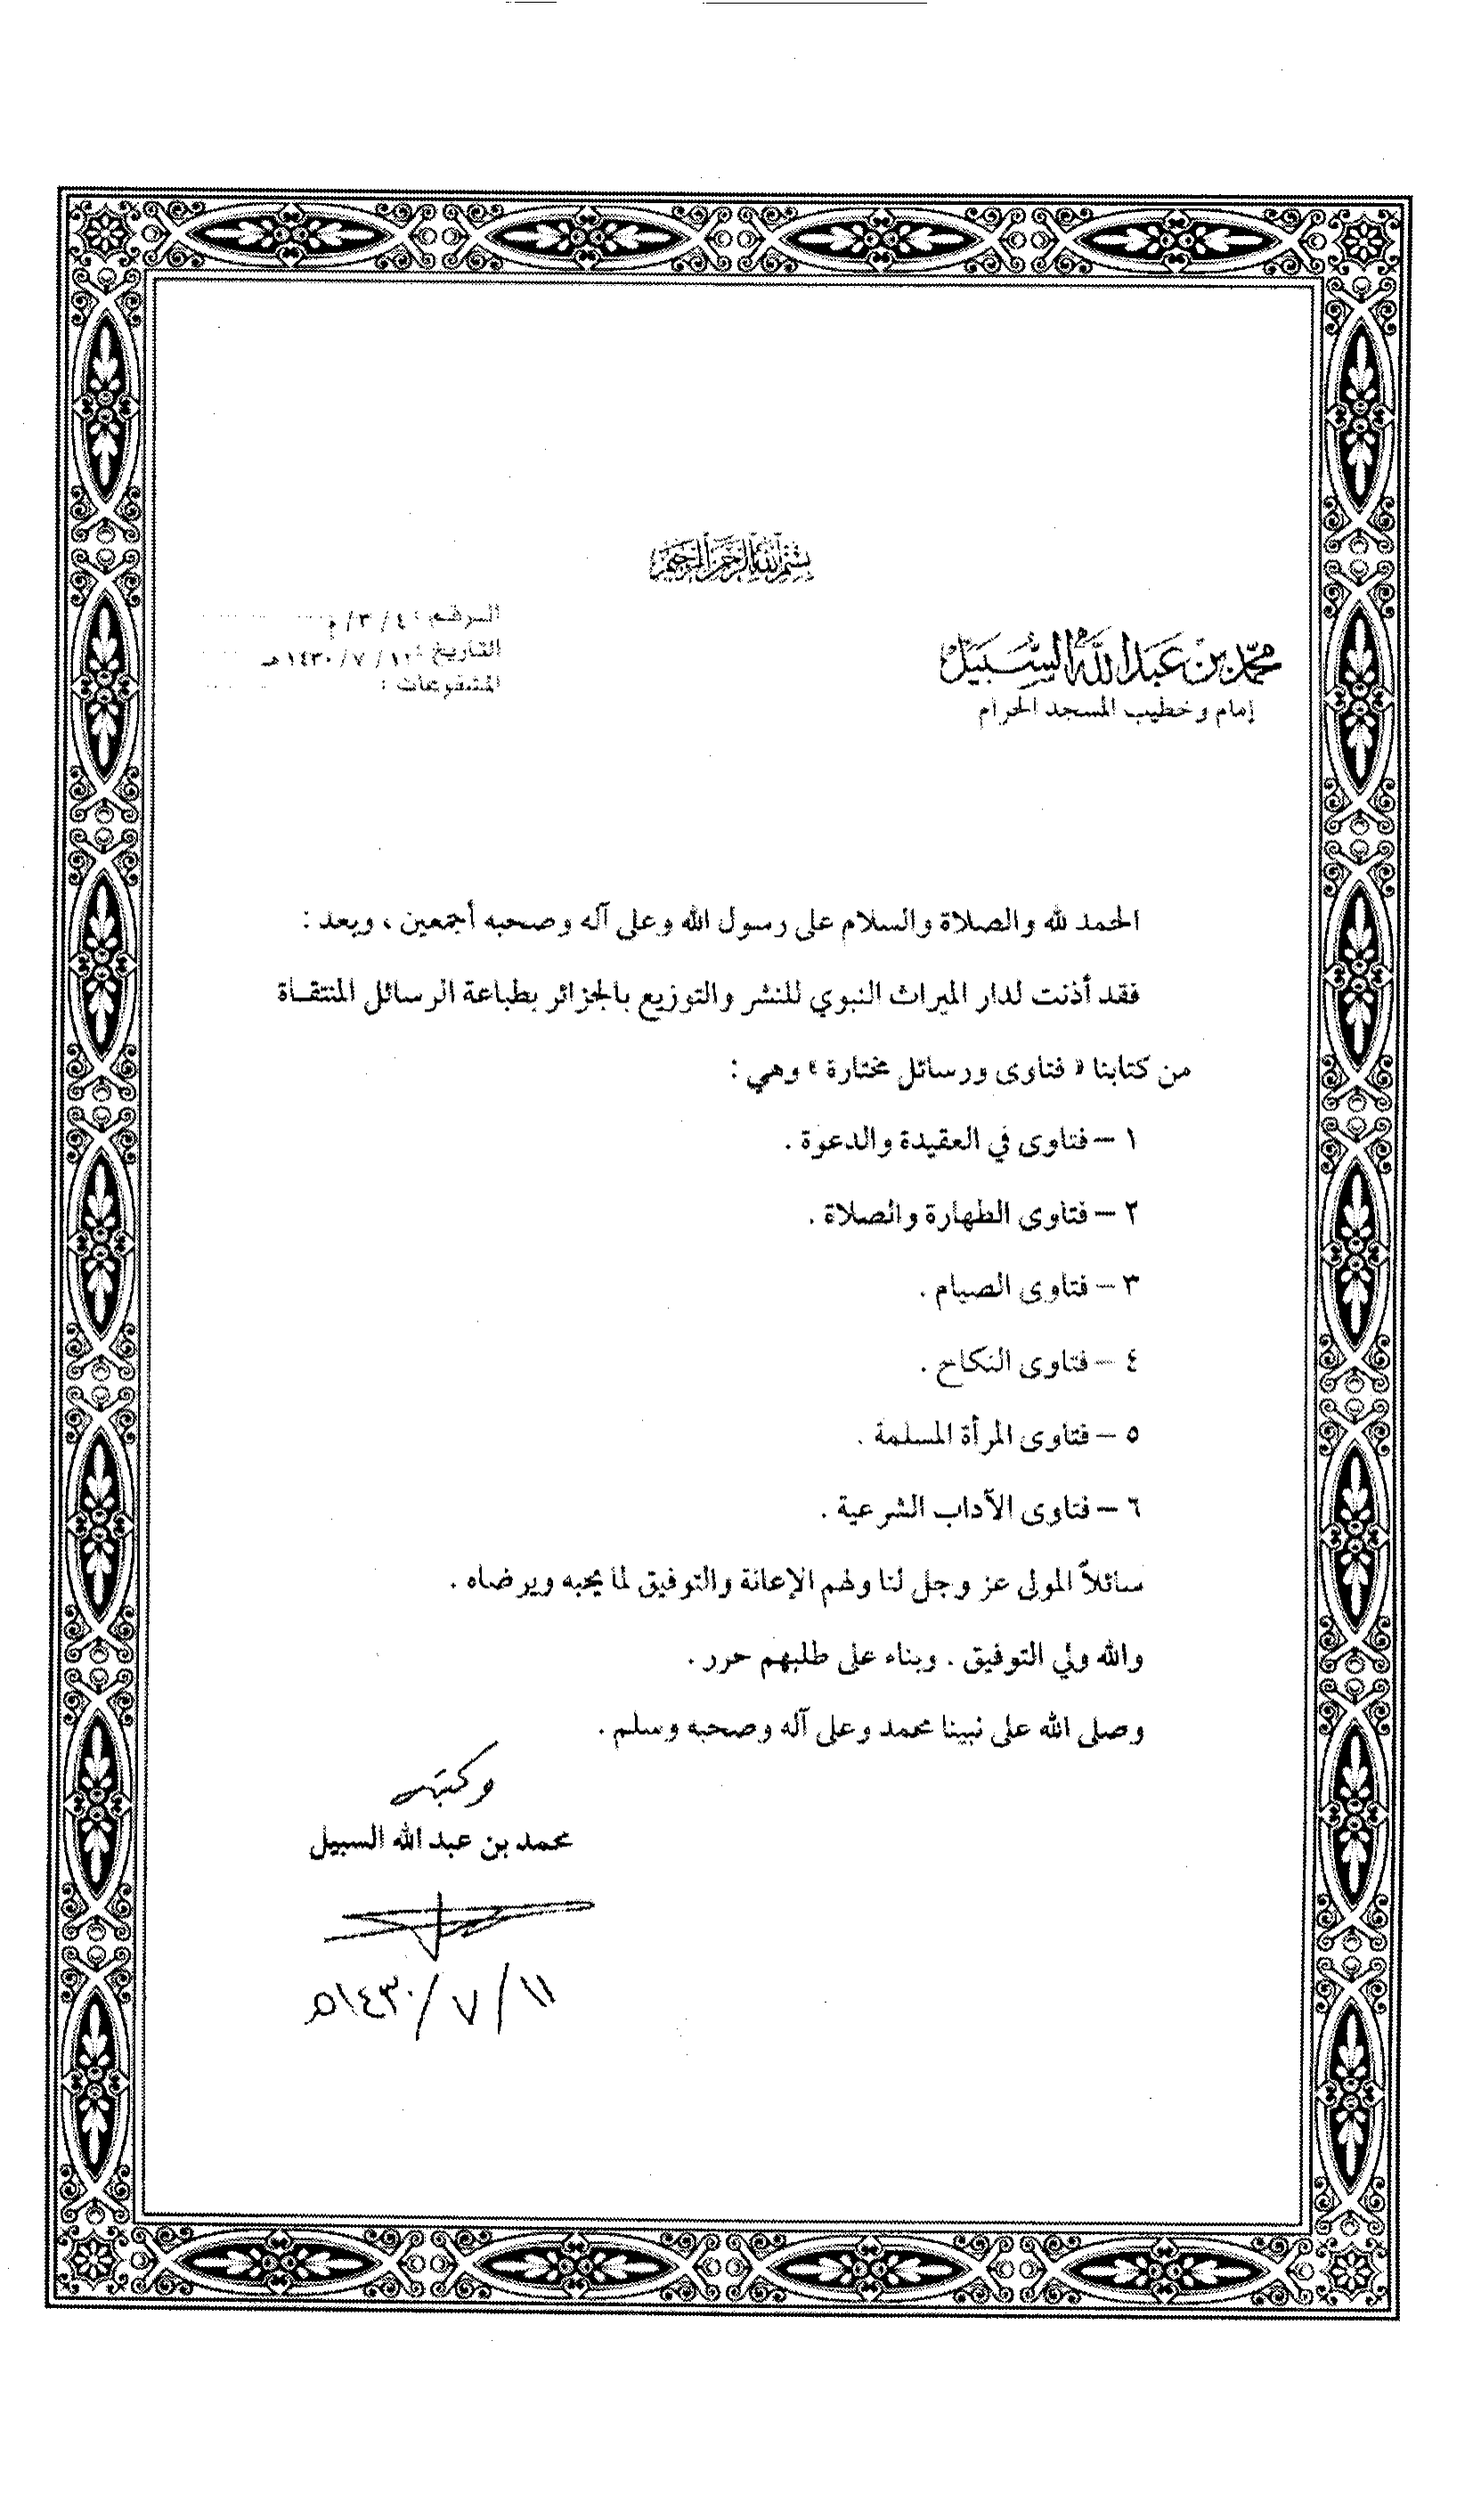 بسم الله الرحمن الرحيم
محمد بن عبد الله السبيل
إمام وخطيب المسجد الحرام
الرقم : ٤ / ٣ / م
التاريخ : ١١ / ٧ / ١٤٣٠ هـ
المشفوعات :
الحمد لله والصلاة والسلام على رسول الله وعلى آله وصحبه أجمعين ، وبعد :
فقد أذنت لدار الميراث النبوي للنشر والتوزيع بالجزائر بطباعة الرسائل المنتقاة
من كتابنا « فتاوى ورسائل مختارة » وهي :
١ – فتاوى في العقيدة والدعوة .
٢ – فتاوى الطهارة والصلاة .
٣ – فتاوى الصيام .
٤ – فتاوى النكاح .
٥ – فتاوى المرأة المسلمة .
٦ – فتاوى الآداب الشرعية .
سائلاً المولى عز وجل لنا ولهم الإعانة والتوفيق لما يحبه ويرضاه .
والله ولي التوفيق . وبناء على طلبهم حرر .
وصلى الله على نبينا محمد وعلى آله وصحبه وسلم .
وكتبه
محمد بن عبد الله السبيل
١١ / ٧ / ١٤٣٠هـ